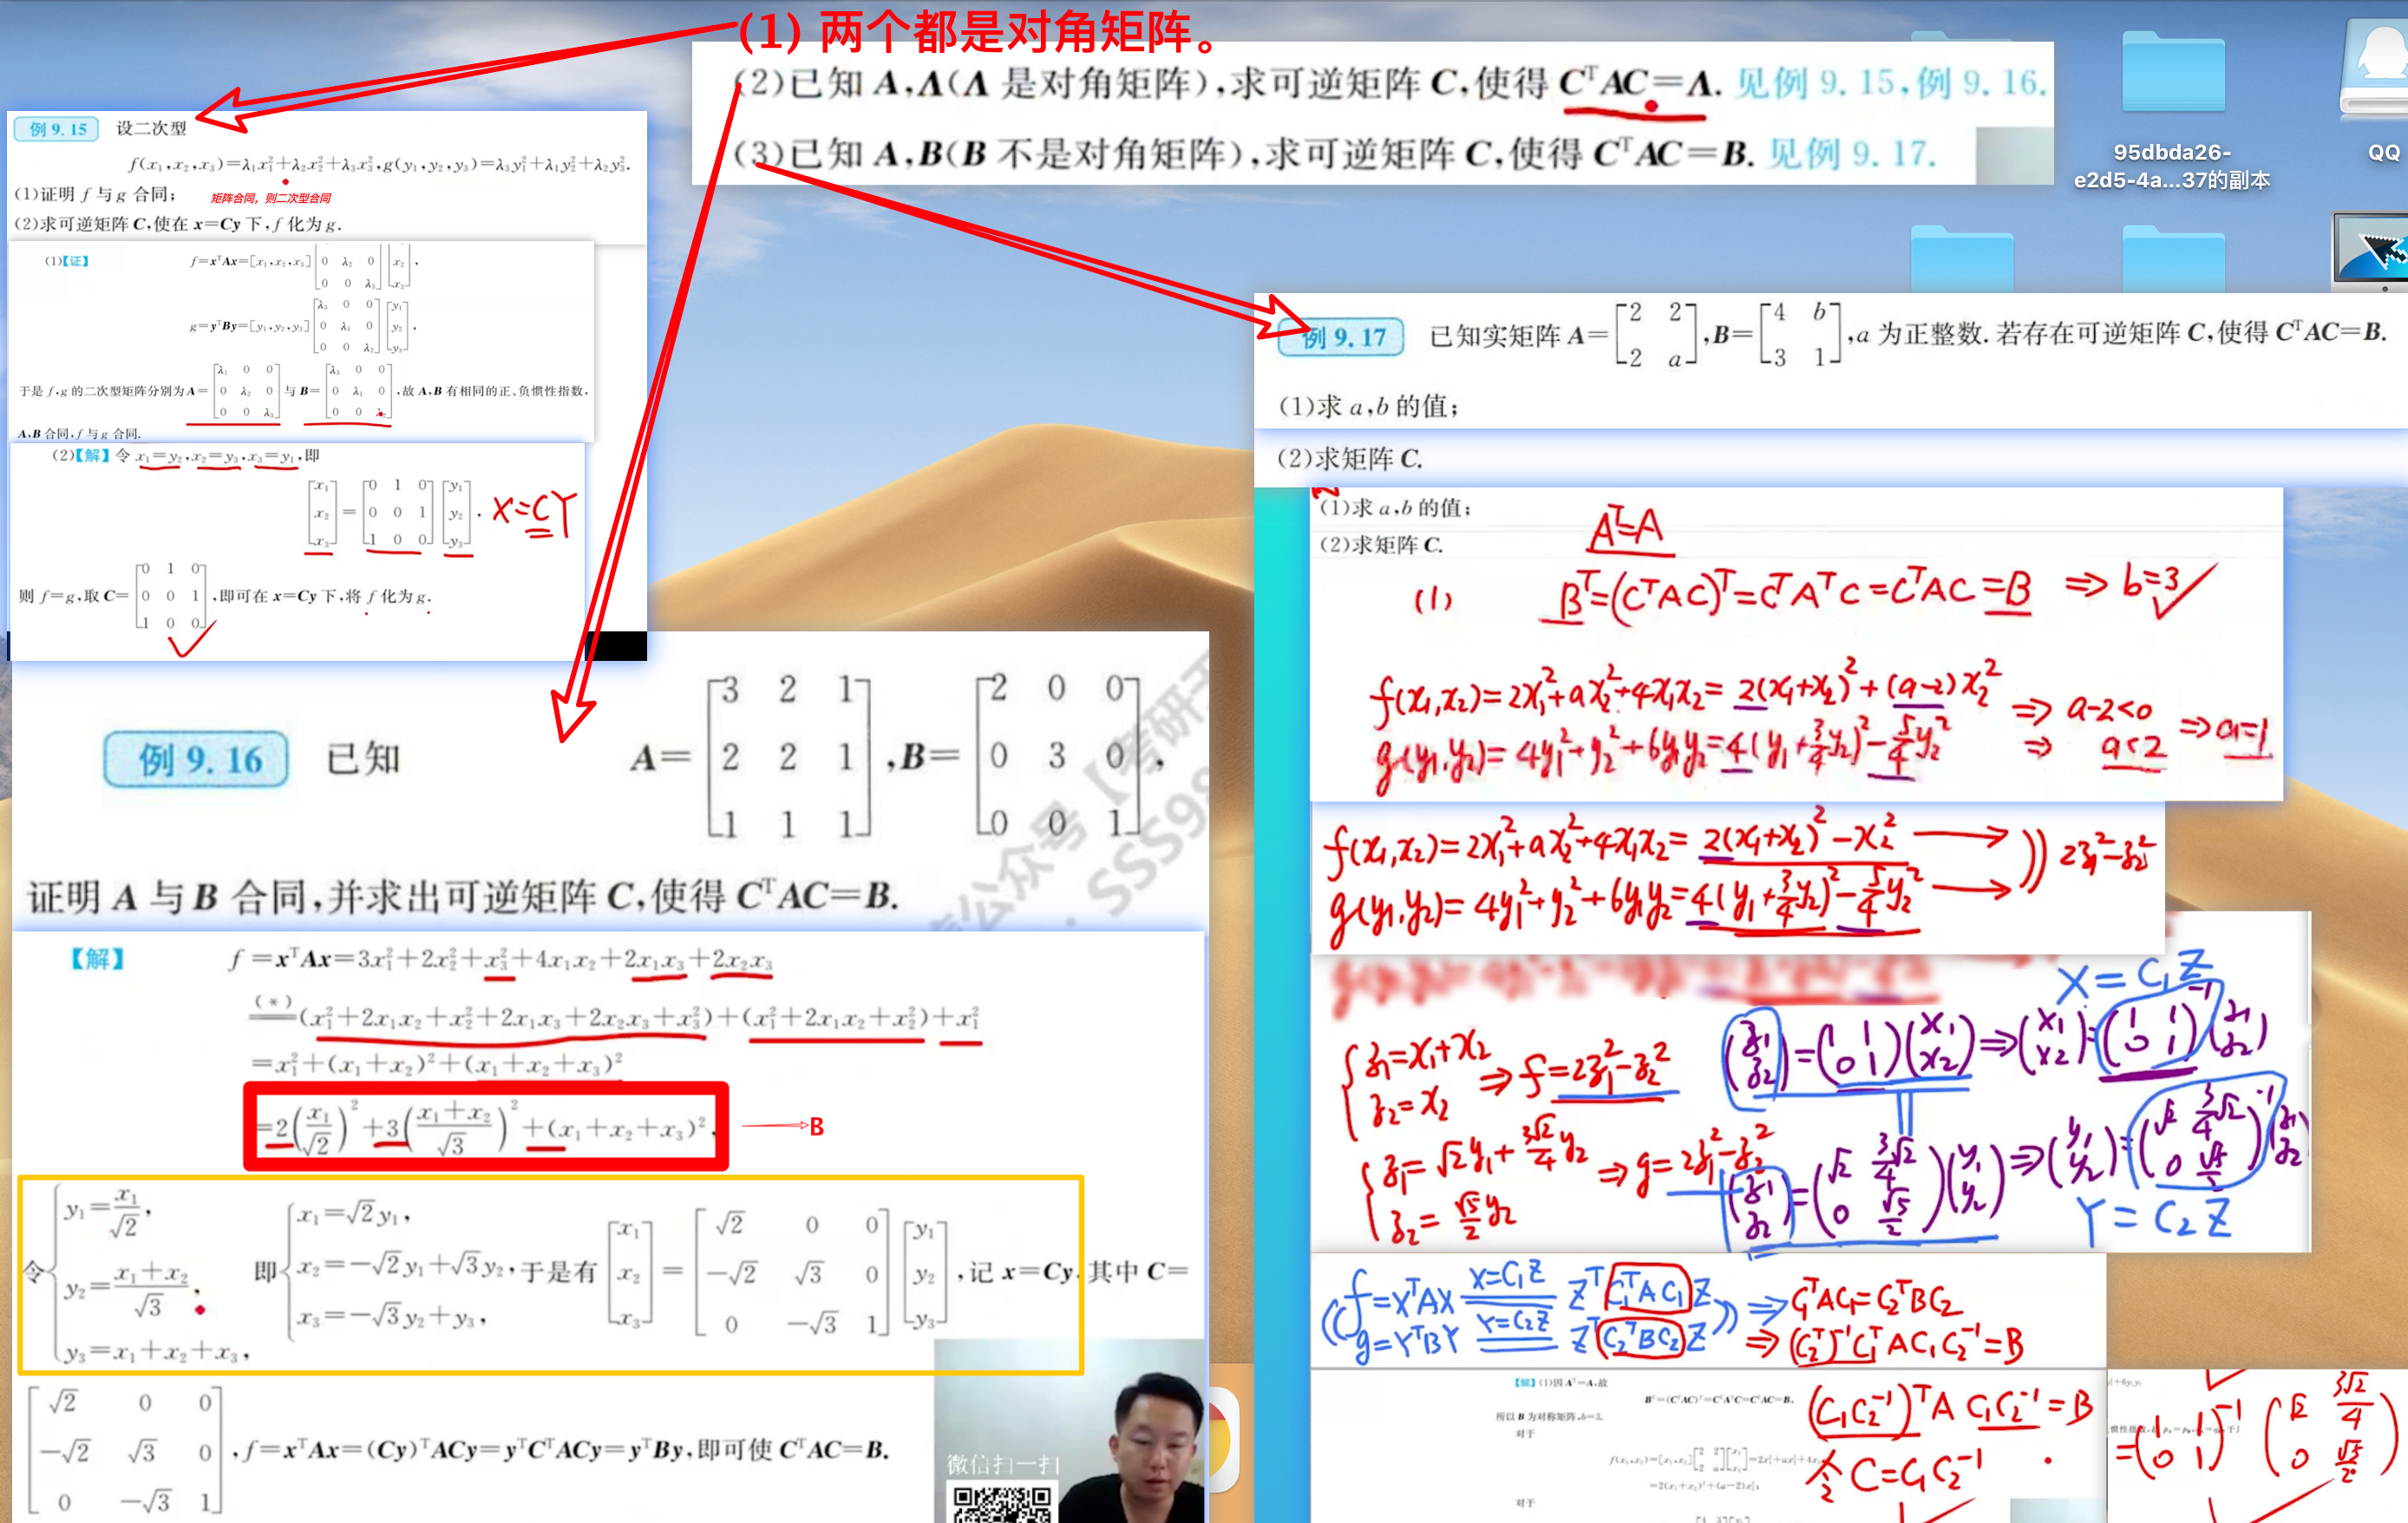 (1) 两个都是对角矩阵。
(2)已知 A,Λ(Λ 是对角矩阵),求可逆矩阵 C,使得 CᵀAC=Λ. 见例 9.15,例 9.16.
(3)已知 A,B(B 不是对角矩阵),求可逆矩阵 C,使得 CᵀAC=B. 见例 9.17.
95dbda26-
e2d5-4a...37的副本
QQ
例 9.15 设二次型
f(x₁,x₂,x₃)=λ₁x₁²+λ₂x₂²+λ₃x₃²,g(y₁,y₂,y₃)=λ₃y₁²+λ₁y₂²+λ₂y₃².
(1)证明 f 与 g 合同;
矩阵合同，则二次型合同
(2)求可逆矩阵 C,使在 x=Cy 下,f 化为 g.
(1)【证】 f=xᵀAx=[x₁,x₂,x₃] [0 λ₂ 0; 0 0 λ₃] [x₂; x₃],
g=yᵀBy=[y₁,y₂,y₃] [λ₃ 0 0; 0 λ₁ 0; 0 0 λ₂] [y₁; y₂; y₃],
于是 f,g 的二次型矩阵分别为 A= [λ₁ 0 0; 0 λ₂ 0; 0 0 λ₃] 与 B= [λ₃ 0 0; 0 λ₁ 0; 0 0 λ₂] ,故 A,B 有相同的正、负惯性指数,
A,B 合同,f 与 g 合同.
(2)【解】令 x₁=y₂,x₂=y₃,x₃=y₁,即
[x₁; x₂; x₃] = [0 1 0; 0 0 1; 1 0 0] [y₁; y₂; y₃], X=CY
则 f=g,取 C= [0 1 0; 0 0 1; 1 0 0] ,即可在 x=Cy 下,将 f 化为 g.
例 9.16 已知 A= [3 2 1; 2 2 1; 1 1 1] ,B= [2 0 0; 0 3 0; 0 0 1] ,
证明 A 与 B 合同,并求出可逆矩阵 C,使得 CᵀAC=B.
【解】 f=xᵀAx=3x₁²+2x₂²+x₃²+4x₁x₂+2x₁x₃+2x₂x₃
(*)
=(x₁²+2x₁x₂+x₂²+2x₁x₃+2x₂x₃+x₃²)+(x₁²+2x₁x₂+x₂²)+x₁²
=x₁²+(x₁+x₂)²+(x₁+x₂+x₃)²
=2(x₁/√2)²+3((x₁+x₂)/√3)²+(x₁+x₂+x₃)². B
令 { y₁=x₁/√2, y₂=(x₁+x₂)/√3, y₃=x₁+x₂+x₃, 即 { x₁=√2y₁, x₂=−√2y₁+√3y₂, x₃=−√3y₂+y₃, 于是有 [x₁; x₂; x₃] = [√2 0 0; −√2 √3 0; 0 −√3 1] [y₁; y₂; y₃] ,记 x=Cy,其中 C=
[√2 0 0; −√2 √3 0; 0 −√3 1] ,f=xᵀAx=(Cy)ᵀACy=yᵀCᵀACy=yᵀBy,即可使 CᵀAC=B.
微信扫一扫
例 9.17 已知实矩阵 A= [2 2; 2 a] ,B= [4 b; 3 1] ,a 为正整数. 若存在可逆矩阵 C,使得 CᵀAC=B.
(1)求 a,b 的值;
(2)求矩阵 C.
(1)求 a,b 的值;
(2)求矩阵 C.
Aᵀ=A
(1) Bᵀ=(CᵀAC)ᵀ=CᵀAᵀC=CᵀAC=B ⇒ b=3
f(x₁,x₂)=2x₁²+ax₂²+4x₁x₂=2(x₁+x₂)²+(a−2)x₂² ⇒ a−2<0
g(y₁,y₂)=4y₁²+y₂²+6y₁y₂=4(y₁+3/4y₂)²−5/4y₂² ⇒ a<2 ⇒ a=1
f(x₁,x₂)=2x₁²+ax₂²+4x₁x₂=2(x₁+x₂)²−x₂²
g(y₁,y₂)=4y₁²+y₂²+6y₁y₂=4(y₁+3/4y₂)²−5/4y₂² 2z₁²−z₂²
X=C₁Z
{ z₁=x₁+x₂ z₂=x₂ ⇒ f=2z₁²−z₂² (z₁; z₂)=(1 1; 0 1)(x₁; x₂) ⇒ (x₁; x₂)=(1 1; 0 1)⁻¹(z₁; z₂)
{ z₁=√2y₁+3√2/4y₂ z₂=√5/2y₂ ⇒ g=2z₁²−z₂² (z₁; z₂)=(√2 3√2/4; 0 √5/2)(y₁; y₂) ⇒ (y₁; y₂)=(√2 3/4√2; 0 √5/2)⁻¹(z₁; z₂)
Y=C₂Z
f=XᵀAX X=C₁Z Zᵀ C₁ᵀAC₁ Z ⇒ C₁ᵀAC₁=C₂ᵀBC₂
g=YᵀBY Y=C₂Z Zᵀ C₂ᵀBC₂ Z ⇒ (C₂ᵀ)⁻¹C₁ᵀAC₁C₂⁻¹=B
【解】(1)因 Aᵀ=A,故
Bᵀ=(CᵀAC)ᵀ=CᵀAᵀC=CᵀAC=B.
所以 B 为对称矩阵,b=3.
对于
(C₁C₂⁻¹)ᵀA C₁C₂⁻¹=B
令 C=C₁C₂⁻¹
=2(x₁+x₂)²+(a−2)x₂²;
对于
=(1 1; 0 1)⁻¹(√2 3√2/4; 0 √5/2)